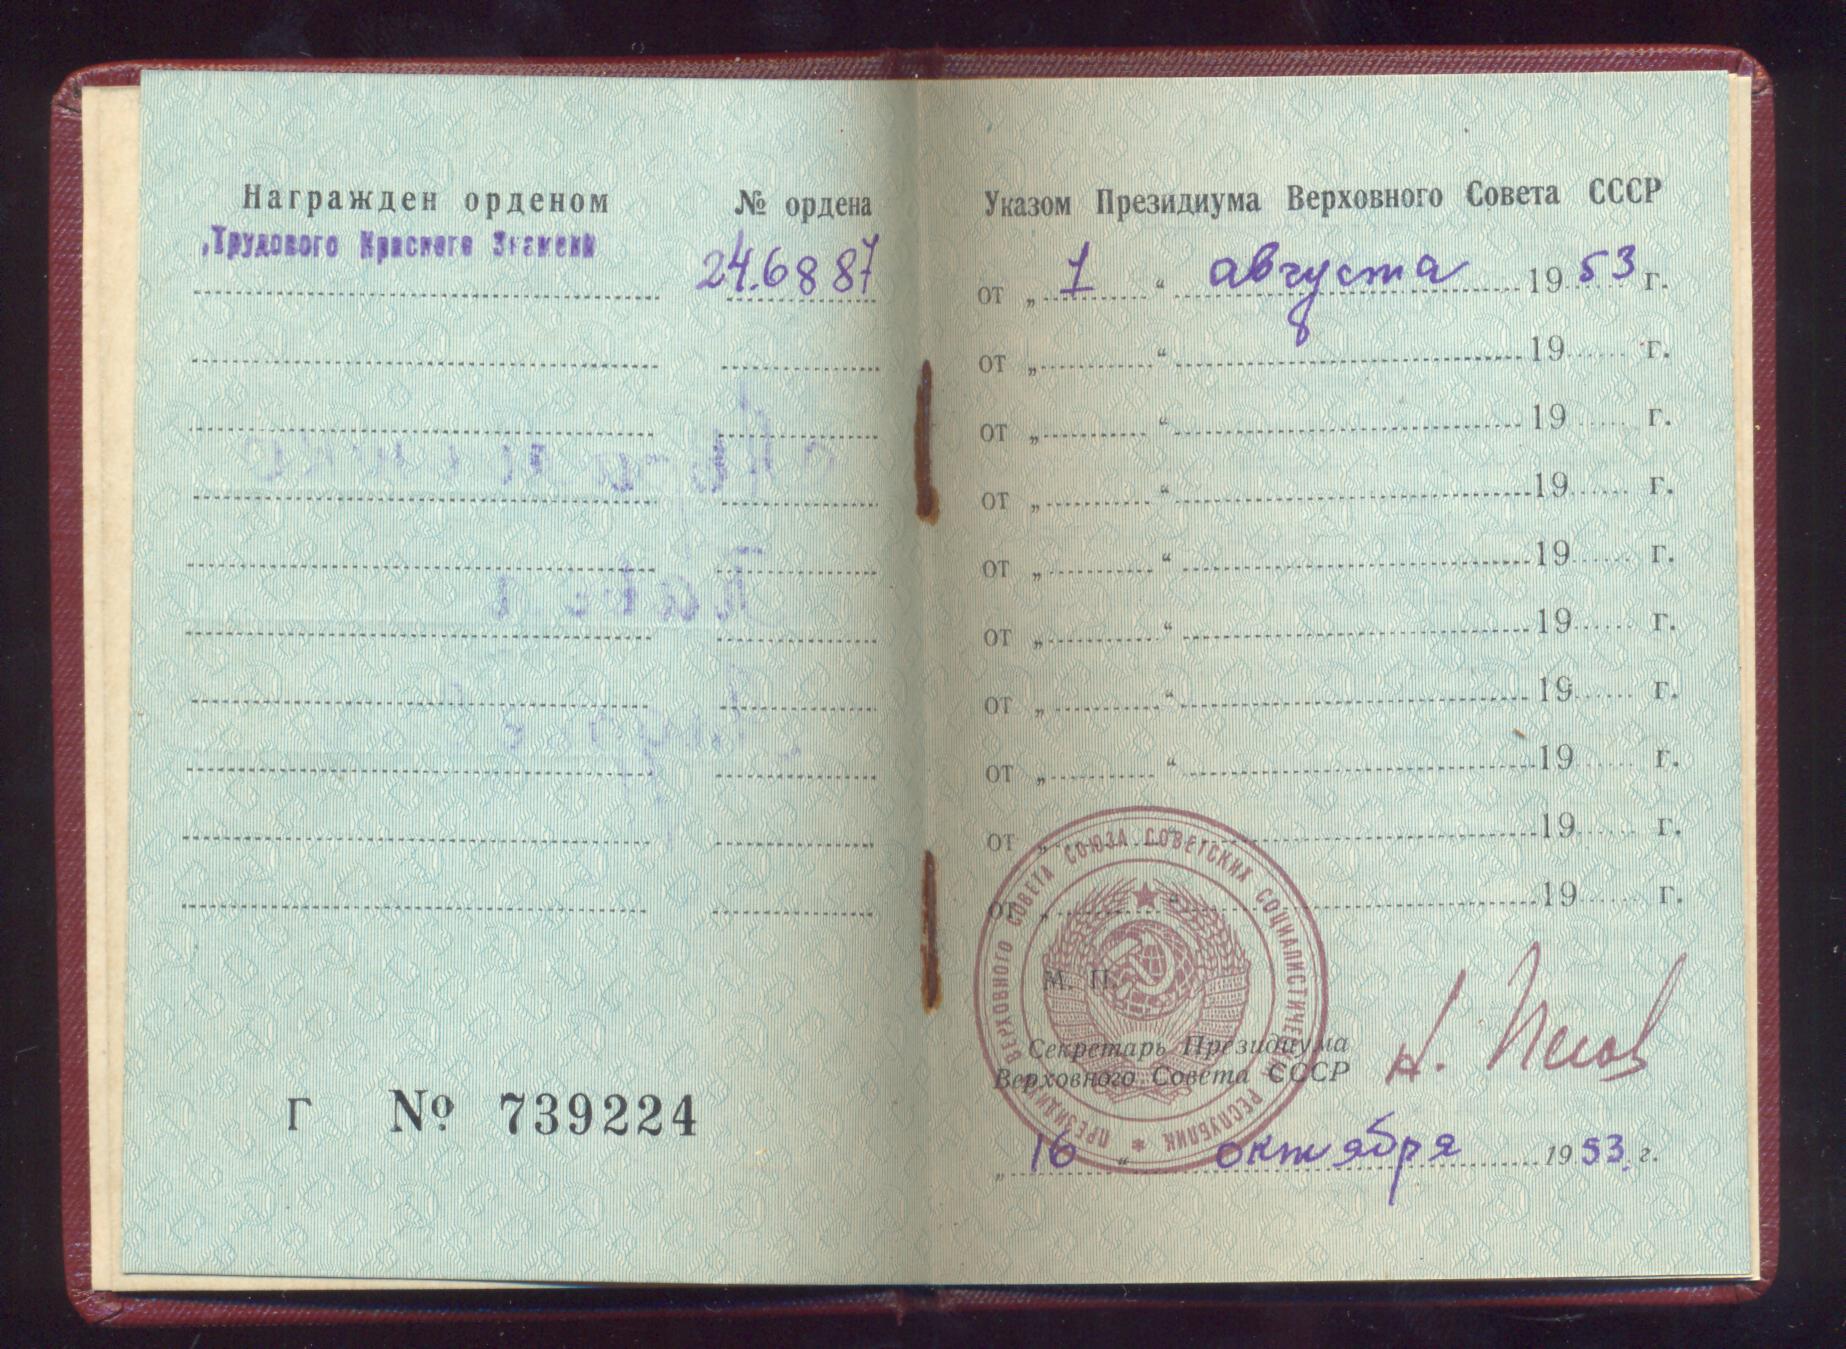 Награжден орденом
Трудового Красного Знамени
№ ордена
246887
Г № 739224
Указом Президиума Верховного Совета СССР
от „ 1 “ августа 1953 г.
от „ “ 19 г.
от „ “ 19 г.
от „ “ 19 г.
от „ “ 19 г.
от „ “ 19 г.
от „ “ 19 г.
от „ “ 19 г.
от „ “ 19 г.
от „ “ 19 г.
ПРЕЗИДИУМ ВЕРХОВНОГО СОВЕТА СОЮЗА СОВЕТСКИХ СОЦИАЛИСТИЧЕСКИХ РЕСПУБЛИК
М. П.
Секретарь Президиума
Верховного Совета СССР
Н. Пегов
„ 16 “ октября 1953 г.